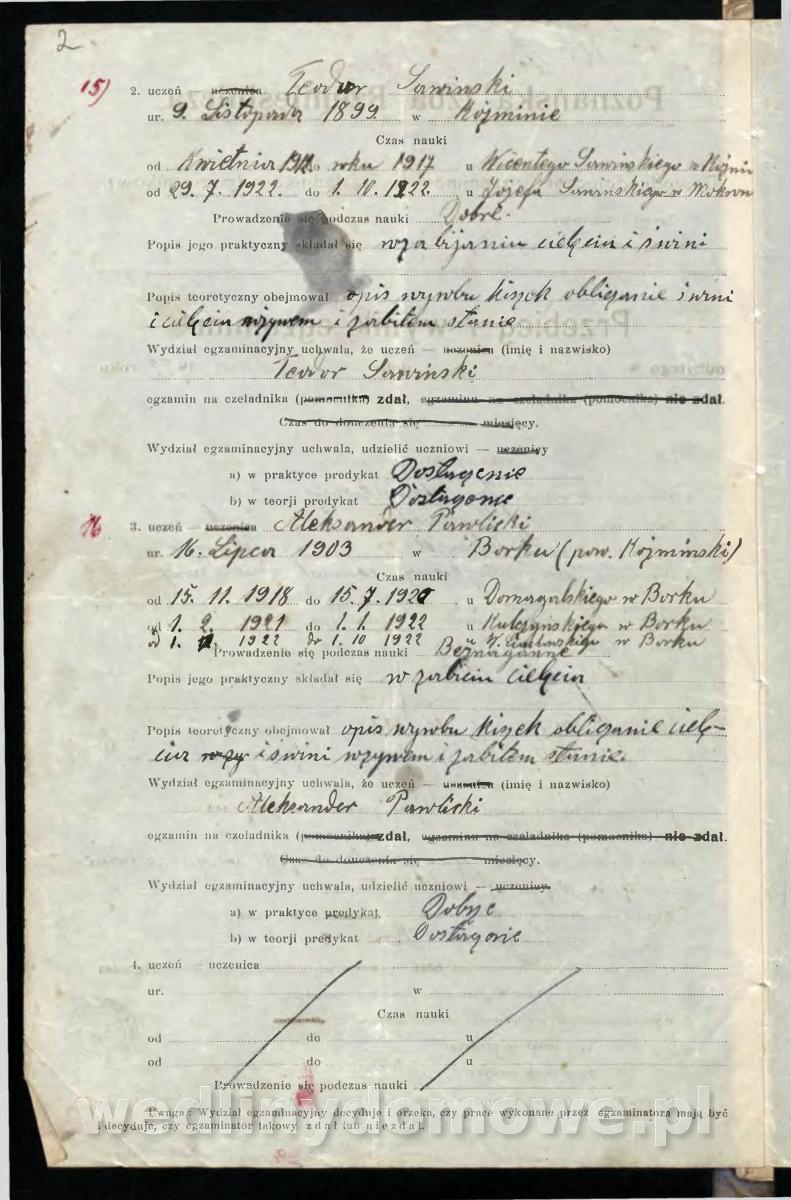 2
15) 2. uczeń uczenica Teodor Sawinski
ur. 9. Listopada 1899 w Koźminie
Czas nauki
od Kwietnia do roku 1917 u Wicentego Sawińskiego w
od 29. 7. 1922. do 1. 10. 1922. u Józefa w
Prowadzenie się podczas nauki Dobre.
Popis jego praktyczny składał się w zabijaniu cielęcia i świni
Popis teoretyczny obejmował opis wyrobu kiszek obliczanie świni
i cielęcia w żywem i zabitem stanie
Wydział egzaminacyjny uchwala, że uczeń — uczenica (imię i nazwisko)
Teodor Sawiński
egzamin na czeladnika (pomocnika) zdał, egzaminu na czeladnika (pomocnika) nie zdał.
Czas do douczenia się miesięcy.
Wydział egzaminacyjny uchwala, udzielić uczniowi — uczenicy
a) w praktyce predykat Dostatecznie
b) w teorji predykat
16 3. uczeń — uczenica Aleksander Pawlicki
ur. 16. Lipca 1903 w Borku (pow. Koźmiński)
Czas nauki
od 15. 11. 1918 do 15. 7. u Domagalskiego w Borku
od 1. 2. 1921 do 1. 1. 1922 u Kulczynskiego w Borku
od 1. 1922 do 1. 10 1922 u W. w Borku
Prowadzenie się podczas nauki Beznaganne
Popis jego praktyczny składał się w zabiciu cielęcia
Popis teoretyczny obejmował opis wyrobu kiszek obliczanie cielę-
cia i świni w żywem i zabitem stanie.
Wydział egzaminacyjny uchwala, że uczeń — uczenica (imię i nazwisko)
Aleksander Pawlicki
egzamin na czeladnika (pomocnika) zdał, egzaminu na czeladnika (pomocnika) nie zdał.
Czas do douczenia się miesięcy.
Wydział egzaminacyjny uchwala, udzielić uczniowi — uczenicy
a) w praktyce predykat Dobrze
b) w teorji predykat
4. uczeń — uczenica
ur. w
Czas nauki
od do u
od do u
Prowadzenie się podczas nauki
Uwaga: Wydział egzaminacyjny decyduje i orzeka, czy prace wykonane przez egzaminatora mają być
i decyduje, czy egzaminator takowy zdał lub nie zdał.
wedlinydomowe.pl